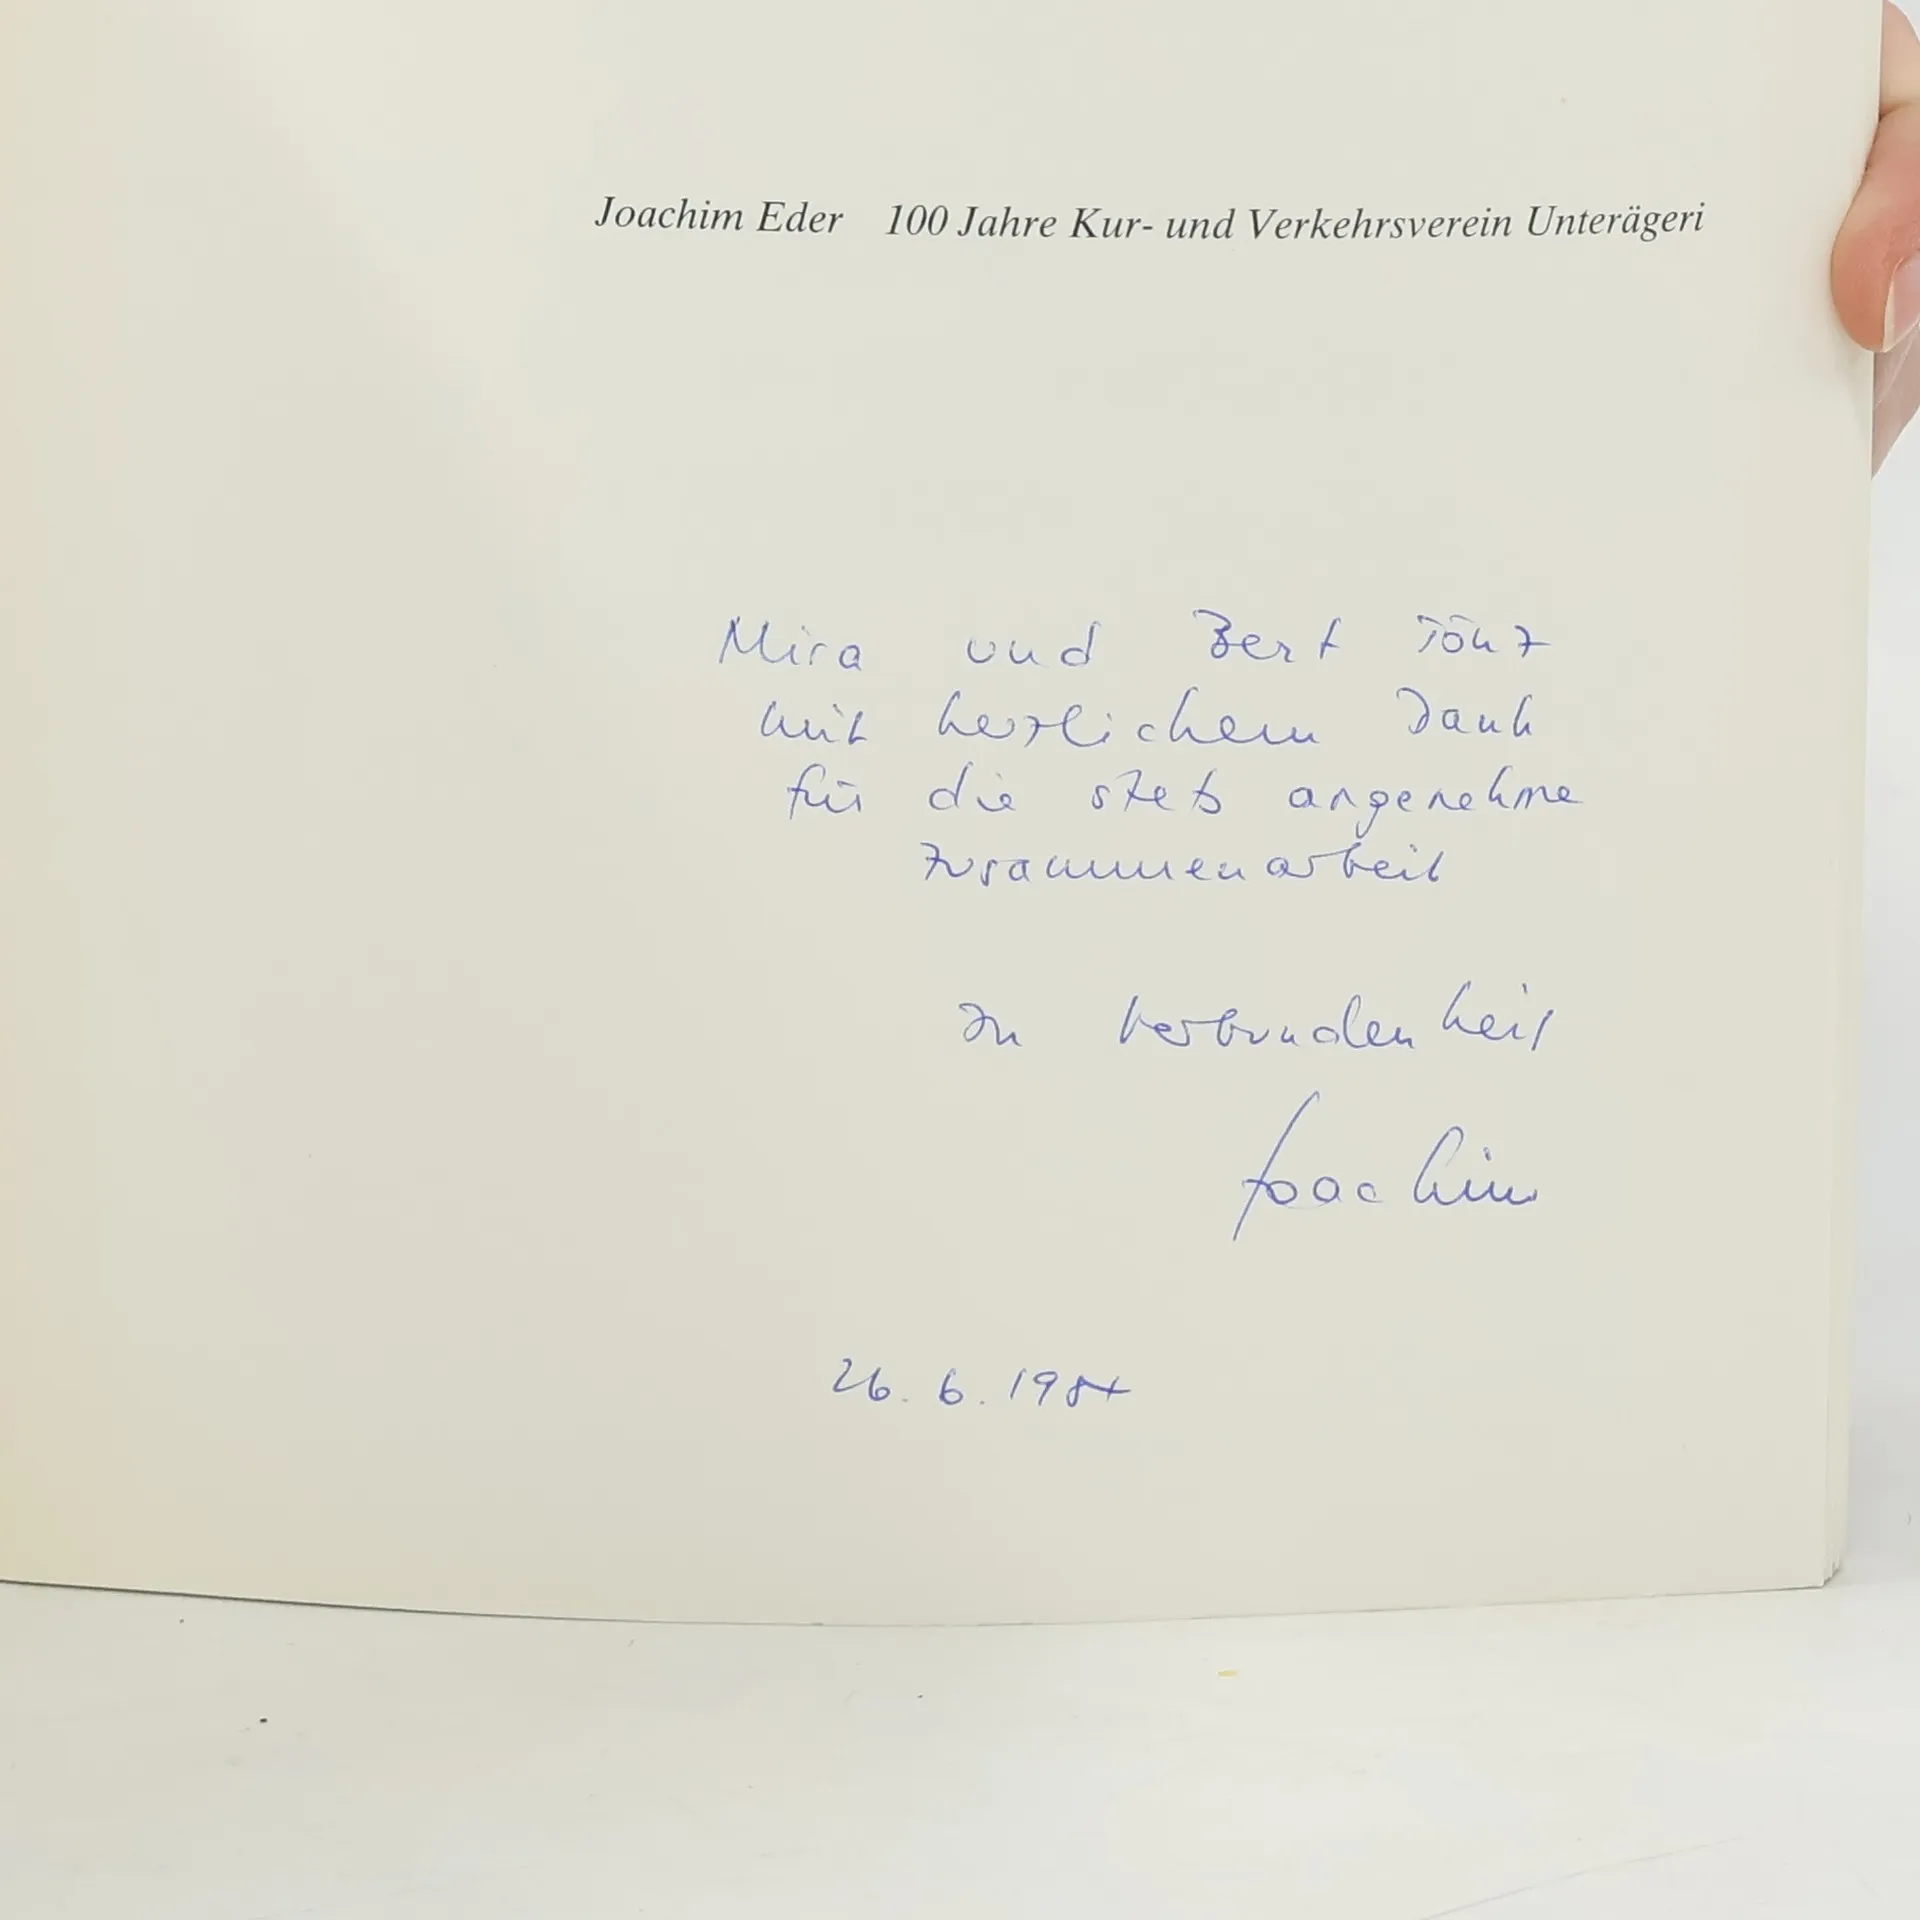 Joachim Eder 100 Jahre Kur- und Verkehrsverein Unterägeri
Mira und Bert Tönz
mit herzlichem Dank
für die stets angenehme
Zusammenarbeit
In Verbundenheit
Joachim
26. 6. 1984